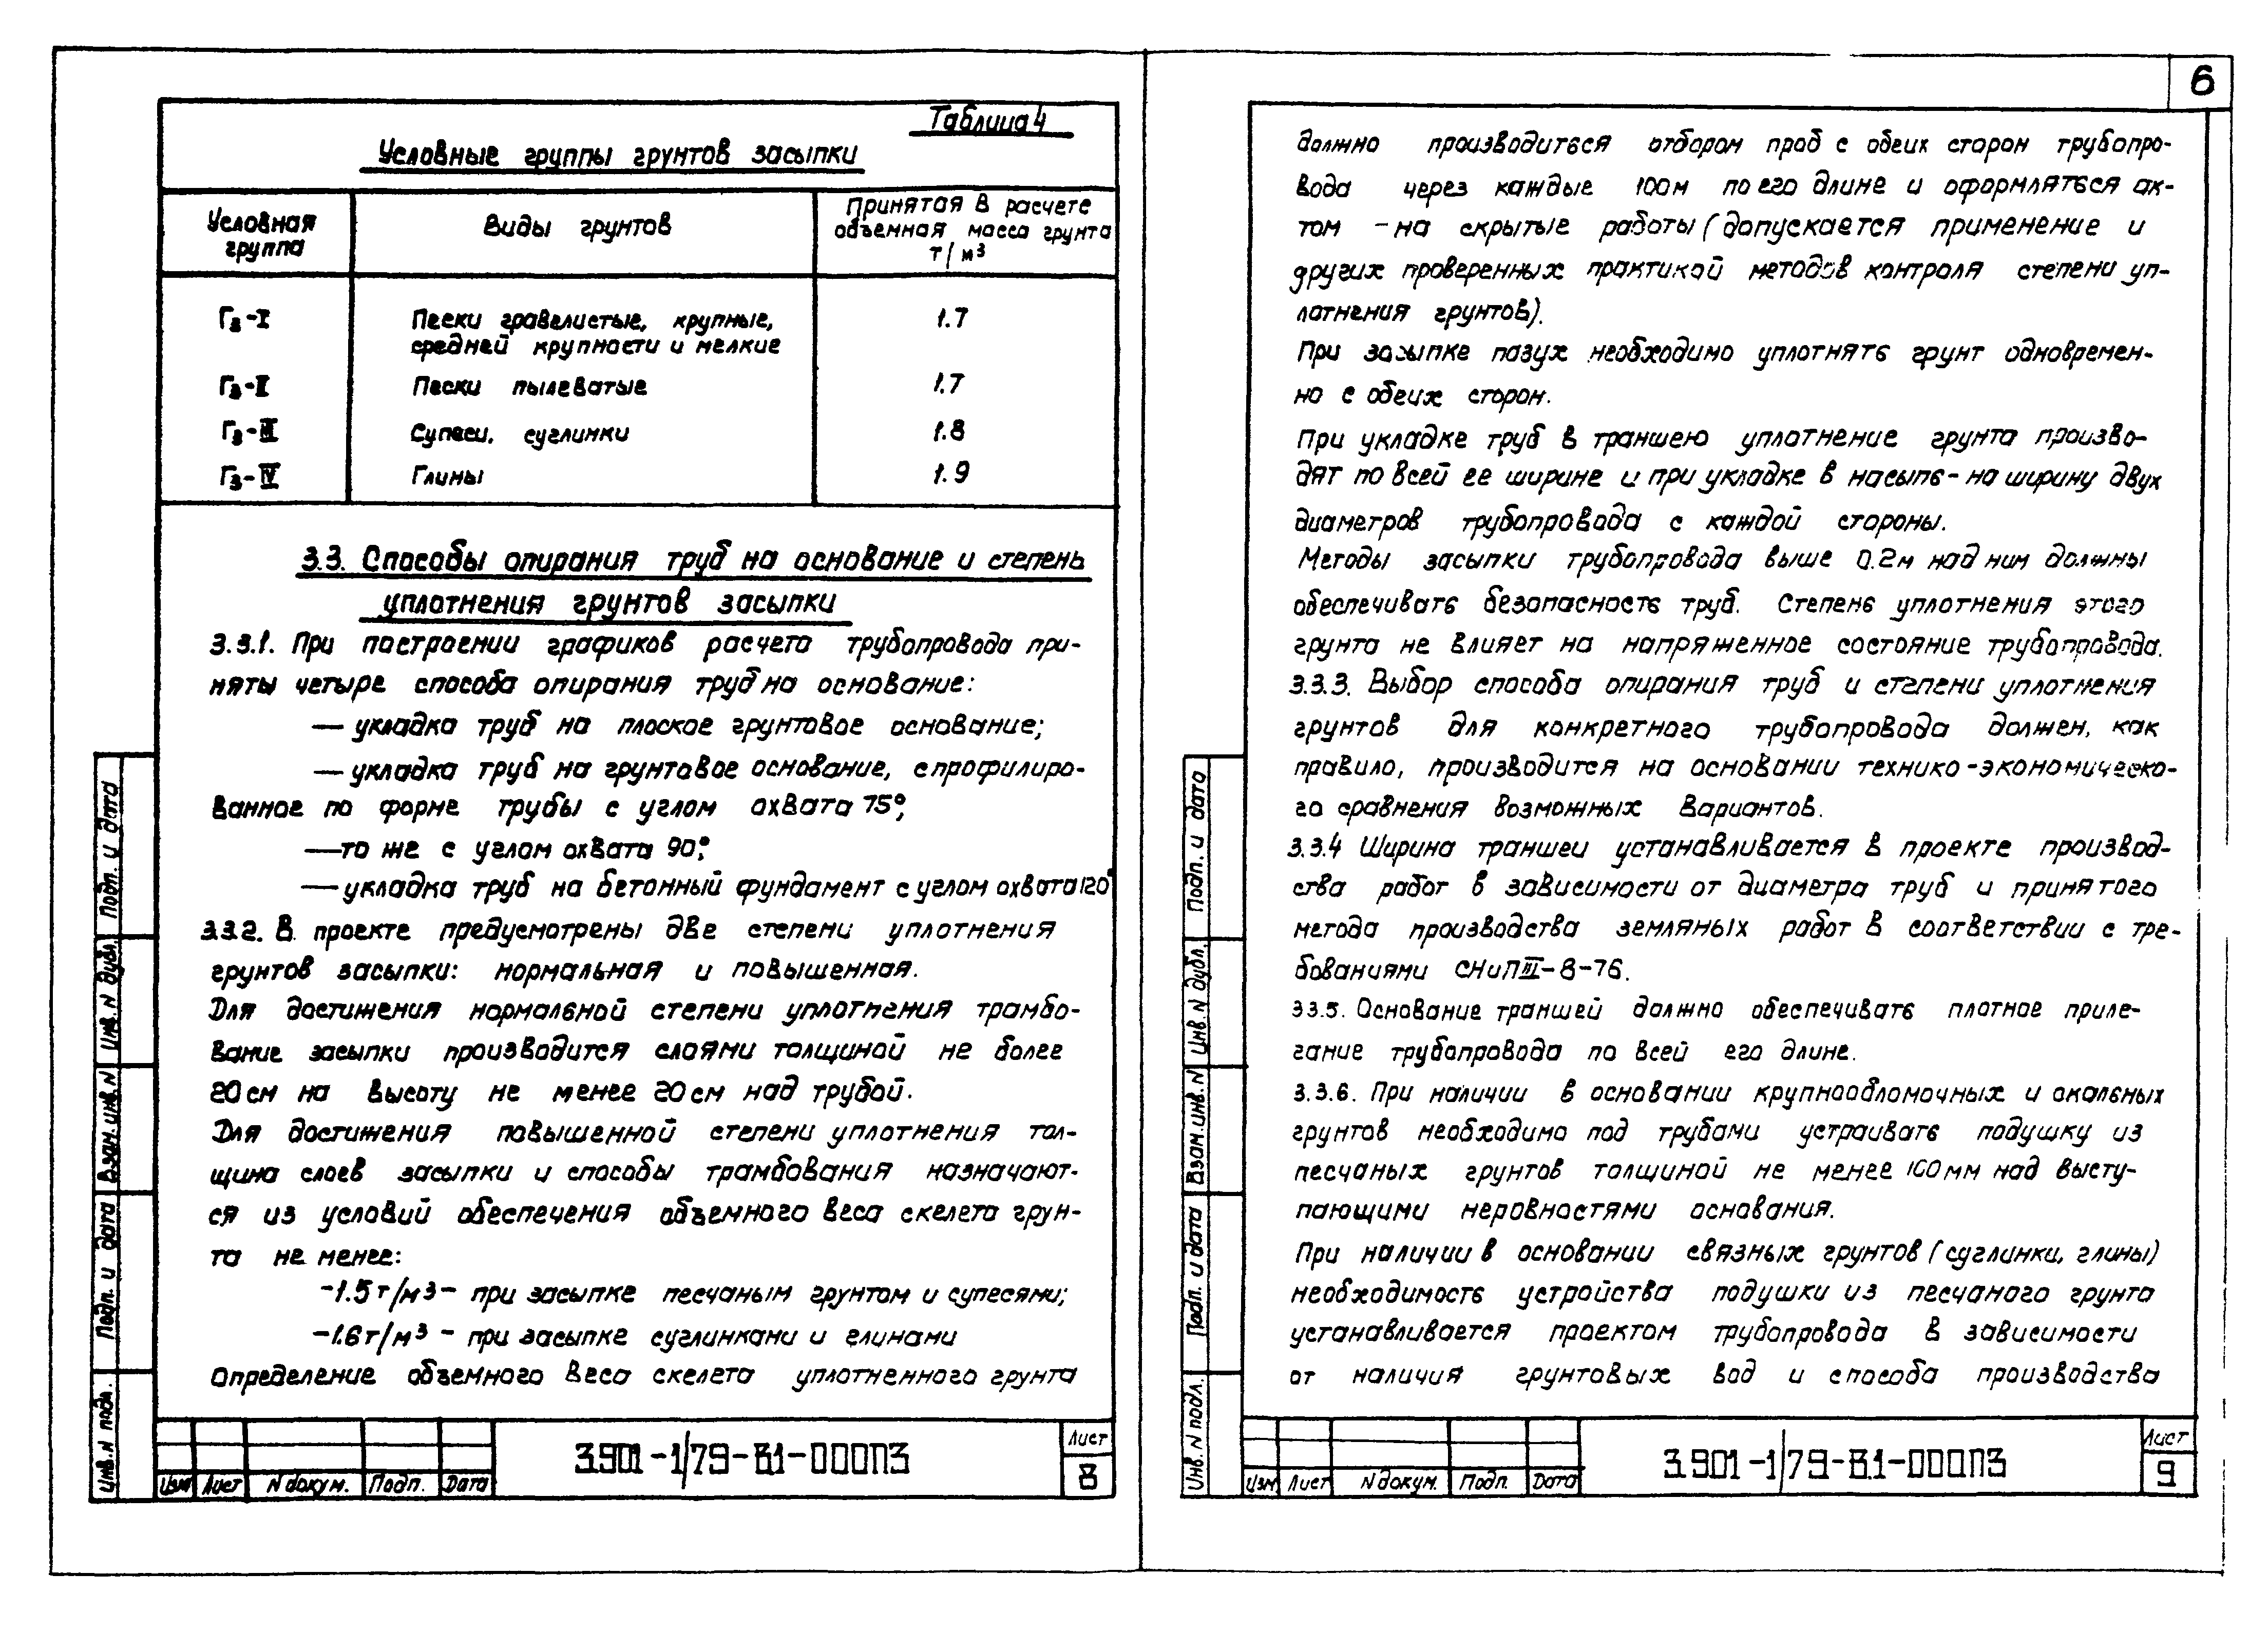 Таблица 4
Условные группы грунтов засыпки
Условная
группа
Виды грунтов
Принятая в расчете
объемная масса грунта
т/м³
Гз-I
Пески гравелистые, крупные,
средней крупности и мелкие
1.7
Гз-II
Пески пылеватые
1.7
Гз-III
Супеси, суглинки
1.8
Гз-IV
Глины
1.9
3.3. Способы опирания труб на основание и степень
уплотнения грунтов засыпки
3.3.1. При построении графиков расчета трубопровода при-
няты четыре способа опирания труб на основание:
— укладка труб на плоское грунтовое основание;
— укладка труб на грунтовое основание, спрофилиро-
ванное по форме трубы с углом охвата 75°;
— то же с углом охвата 90°;
— укладка труб на бетонный фундамент с углом охвата 120°
3.3.2. В проекте предусмотрены две степени уплотнения
грунтов засыпки: нормальная и повышенная.
Для достижения нормальной степени уплотнения трамбо-
вание засыпки производится слоями толщиной не более
20 см на высоту не менее 20 см над трубой.
Для достижения повышенной степени уплотнения тол-
щина слоев засыпки и способы трамбования назначают-
ся из условий обеспечения объемного веса скелета грун-
та не менее:
-1.5 т/м³ - при засыпке песчаным грунтом и супесями;
-1.6 т/м³ - при засыпке суглинками и глинами
Определение объемного веса скелета уплотненного грунта
Подп. и дата
Инв. N дубл.
Взам. инв. N
Подп. и дата
Инв. N подл.
Изм Лист N докум. Подп. Дата
3.901-1/79-В.1-000ПЗ
Лист
8
6
должно производиться отбором проб с обеих сторон трубопро-
вода через каждые 100 м по его длине и оформляться ак-
том - на скрытые работы (допускается применение и
других проверенных практикой методов контроля степени уп-
лотнения грунтов).
При засыпке пазух необходимо уплотнять грунт одновремен-
но с обеих сторон.
При укладке труб в траншею уплотнение грунта произво-
дят по всей ее ширине и при укладке в насыпь - на ширину двух
диаметров трубопровода с каждой стороны.
Методы засыпки трубопровода выше 0.2 м над ним должны
обеспечивать безопасность труб. Степень уплотнения этого
грунта не влияет на напряженное состояние трубопровода.
3.3.3. Выбор способа опирания труб и степени уплотнения
грунтов для конкретного трубопровода должен, как
правило, производится на основании технико-экономическо-
го сравнения возможных вариантов.
3.3.4 Ширина траншеи устанавливается в проекте производ-
ства работ в зависимости от диаметра труб и принятого
метода производства земляных работ в соответствии с тре-
бованиями СНиП III-8-76.
3.3.5. Основание траншей должно обеспечивать плотное приле-
гание трубопровода по всей его длине.
3.3.6. При наличии в основании крупнообломочных и скальных
грунтов необходимо под трубами устраивать подушку из
песчаных грунтов толщиной не менее 100 мм над высту-
пающими неровностями основания.
При наличии в основании связных грунтов (суглинки, глины)
необходимость устройства подушки из песчаного грунта
устанавливается проектом трубопровода в зависимости
от наличия грунтовых вод и способа производства
Подп. и дата
Инв. N дубл.
Взам. инв. N
Подп. и дата
Инв. N подл.
Изм Лист N докум. Подп. Дата
3.901-1/79-В.1-000ПЗ
Лист
9